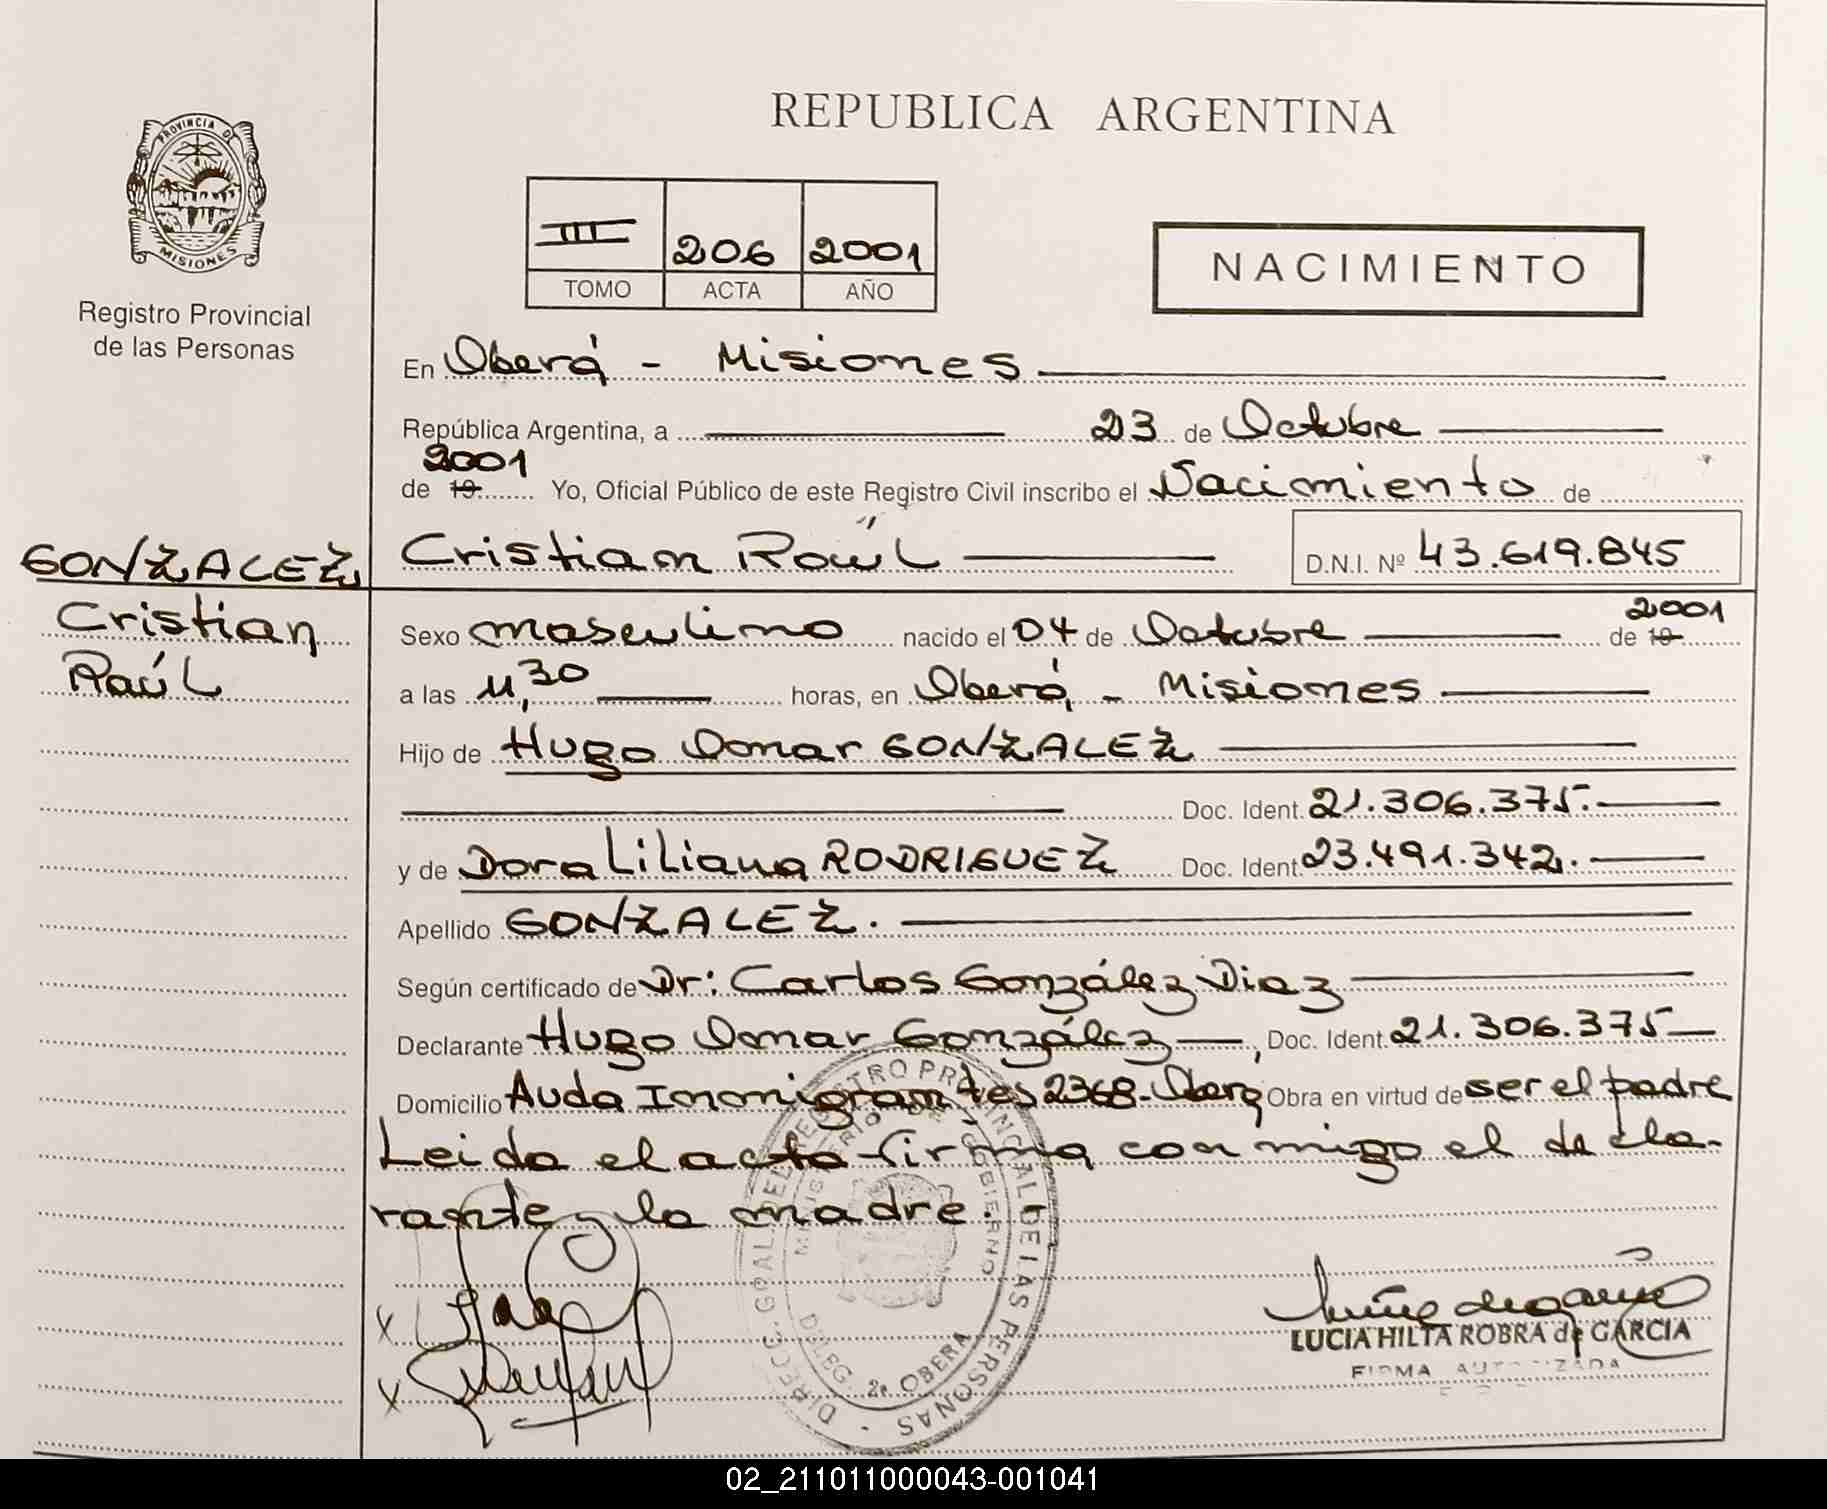 REPUBLICA ARGENTINA
PROVINCIA DE
MISIONES
Registro Provincial
de las Personas
III 206 2001
TOMO ACTA AÑO
NACIMIENTO
En Oberá - Misiones
República Argentina, a 23 de Octubre
2001
de 19 Yo, Oficial Público de este Registro Civil inscribo el Nacimiento de
GONZALEZ Cristian Raúl D.N.I. Nº 43.619.845
Cristian
Raúl
2001
Sexo masculino nacido el 04 de Octubre de 19
a las 11,30 horas, en Oberá, - Misiones
Hijo de Hugo Omar GONZALEZ
Doc. Ident. 21.306.375.
y de Dora Liliana RODRIGUEZ Doc. Ident. 23.491.342.
Apellido GONZALEZ.
Según certificado de Dr: Carlos González Diaz
Declarante Hugo Omar González, Doc. Ident. 21.306.375
Domicilio Avda Inmigrantes 2368- Oberá Obra en virtud de ser el padre
Leida el acta firma conmigo el decla-
rante y la madre.
DIRECC. GRAL. DEL REGISTRO PROVINCIAL DE LAS PERSONAS -
MINISTERIO DE GOBIERNO
DELEG. 2ª OBERA
LUCIA HILTA ROBRA de GARCIA
FIRMA AUTORIZADA
02_211011000043-001041